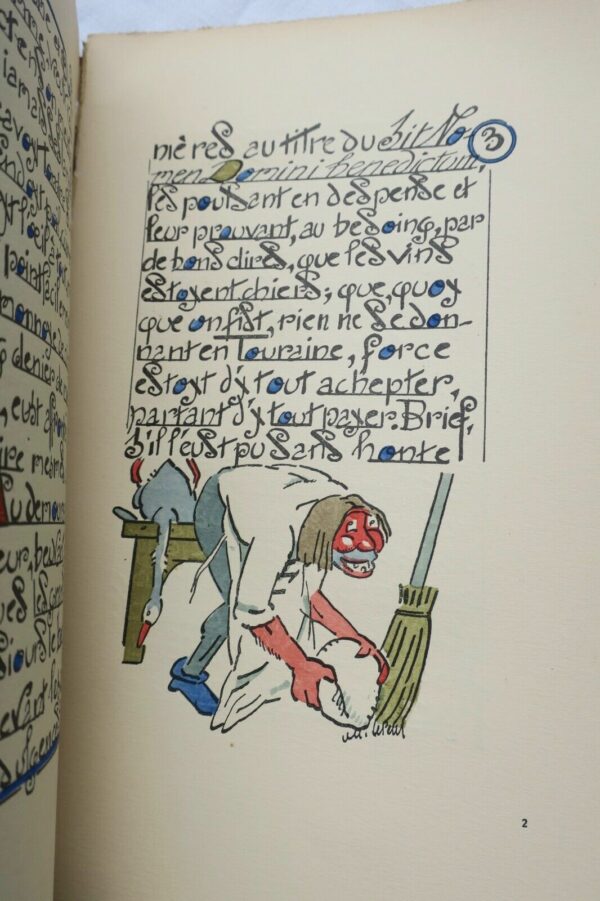 point facilem
monnoye
denier de
eust
Au demour
nières au titre du Sit No- 3
men Domini benedictum,
les poulsant en despense et
leur prouvant, au besoing, par
de bons dires, que les vins
estoyent chiers; que, quoy
que on fist, rien ne se don-
nant en Touraine, force
estoyt d'y tout achepter,
partant d'y tout payer. Brief,
s'il l'eust pu sans honte
2